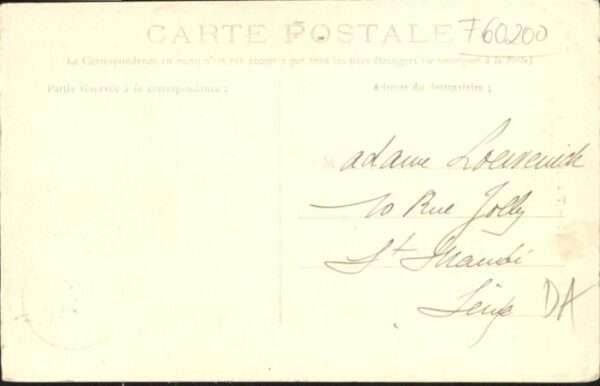 CARTE POSTALE
760200
La Correspondance au recto n'est pas acceptée par tous les pays étrangers (se renseigner à la Poste)
Partie réservée à la correspondance :
Adresse du destinataire :
Madame Loewenick
10 Rue Jolly
St Mandé
Seine
DA